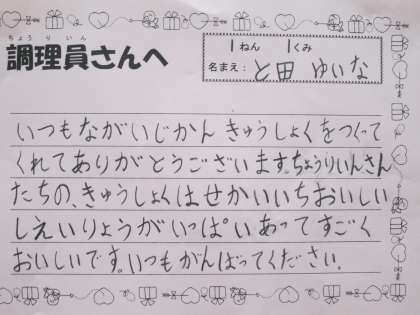 ちょうりいん
調理員さんへ
1ねん 1くみ
名まえ: と田 ゆいな
いつもながいじかん きゅうしょくをつくって
くれてありがとうございます。ちょうりいんさん
たちの、きゅうしょくはせかいいちおいしい
しえいりょうがいっぱいあってすごく
おいしいです。いつもがんばってください。